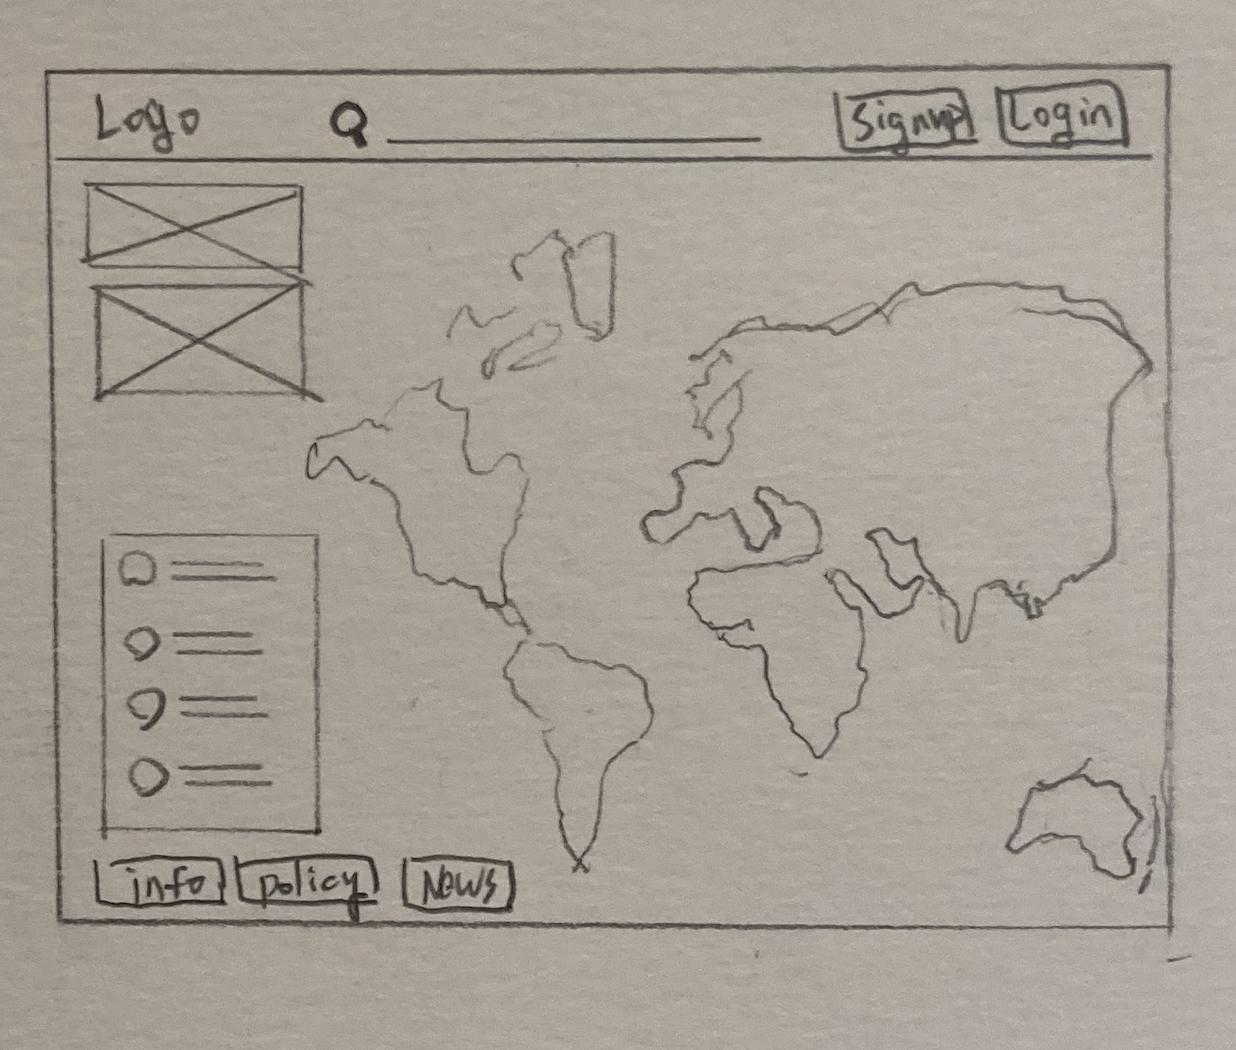 Logo
Signup
Login
info
policy
News